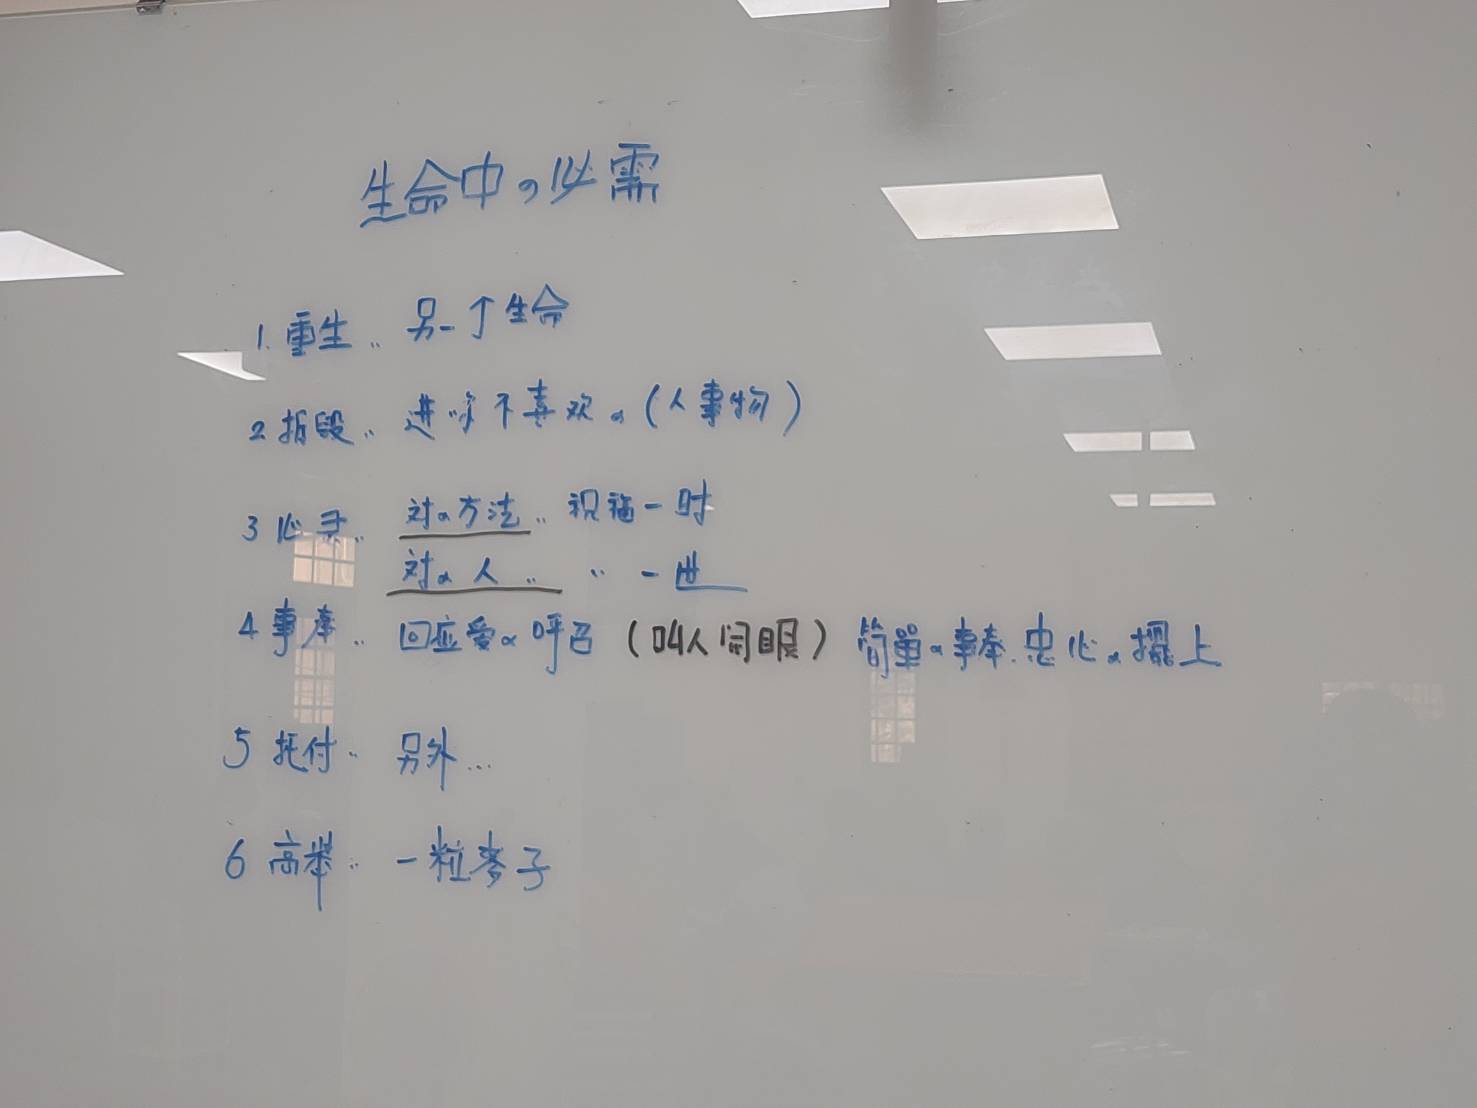 生命中の必需
1. 重生.. 另一个生命
2 拆毁.. 进你不喜欢の(人事物)
3 必灵.. 对の方法.. 祝福一时
对の人.. 〃 一世
4 事奉.. 回应爱の呼召 (叫人闭眼) 简單の事奉. 忠心の擺上
5 托付.. 另外...
6 高举.. 一粒麥子